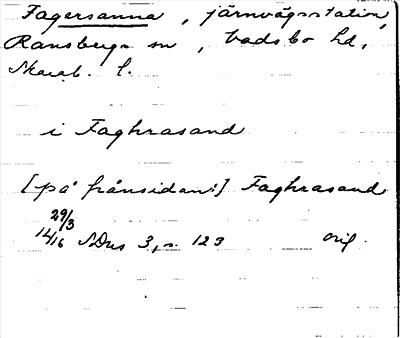 Fagersanna, järnvägsstation,
Ransbergs sn, Vadsbo hd,
Skarab. l.
i Faghrasand
[på frånsidan:] Faghrasand
29/3
1416 SDns 3, s. 123 orig.